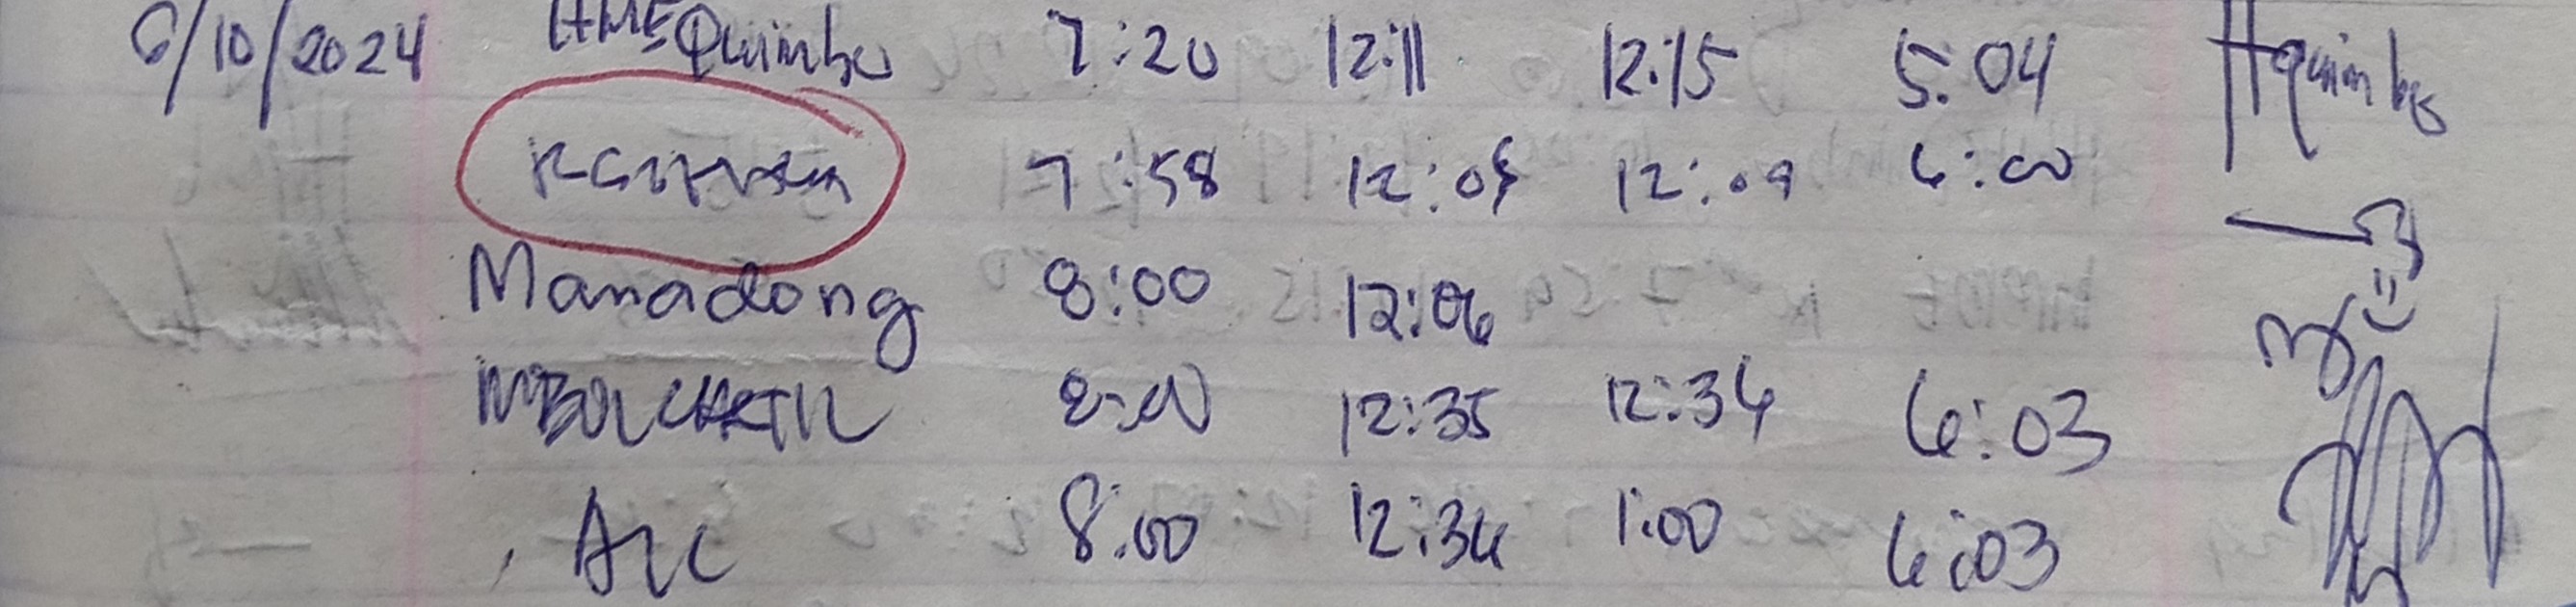 6/10/2024 HME Quimbo 7:20 12:11 12:15 5:04 Hquimbo
7:58 12:05 12:09 6:00
Manadong 8:00 12:06
8:00 12:35 12:34 6:03
8:00 12:34 1:00 6:03